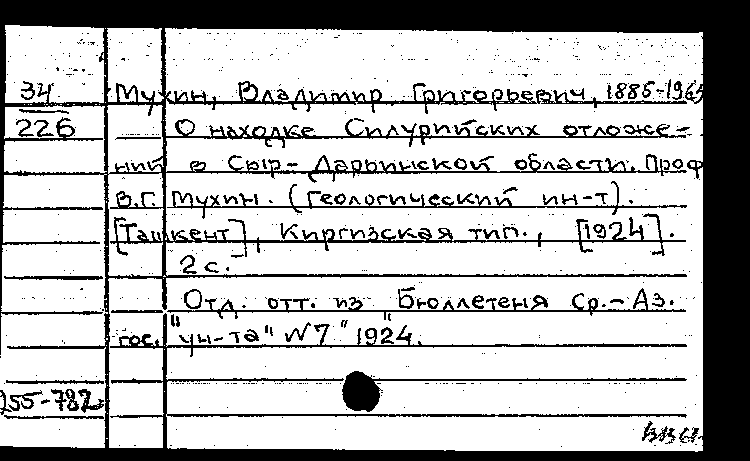 34
226
Мухин, Владимир Григорьевич, 1885-1965
О находке Силурийских отложе-
ний в Сыр-Дарьинской области. Проф
В.Г. Мухин. (Геологический ин-т).
[Ташкент], Киргизская тип., [1924].
2 с.
Отд. отт. из "Бюллетеня Ср.-Аз.
гос. ун-та" №7 1924.
255-782